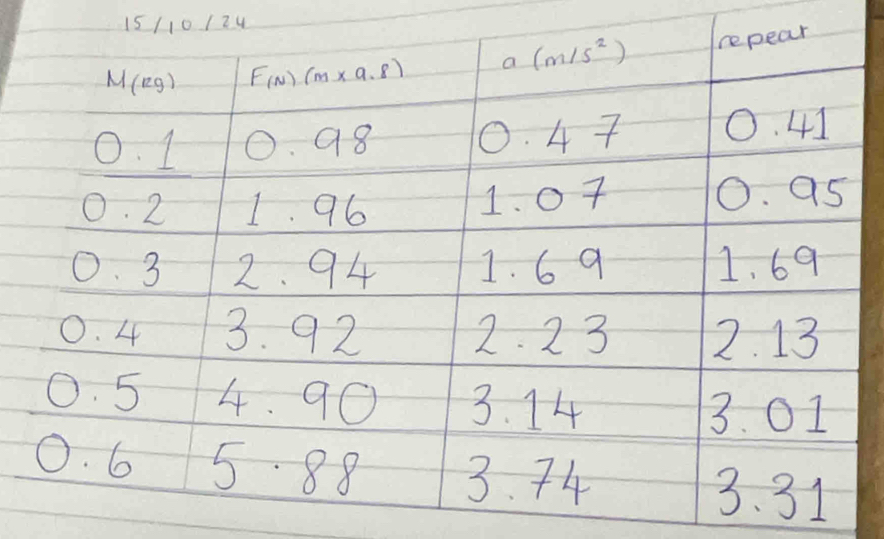 15/10/24
M(kg) F(N) (m x 9.8) a (m/s²) repeat
0.1 0.98 0.47 0.41
0.2 1.96 1.07 0.95
0.3 2.94 1.69 1.69
0.4 3.92 2.23 2.13
0.5 4.90 3.14 3.01
0.6 5.88 3.74 3.31